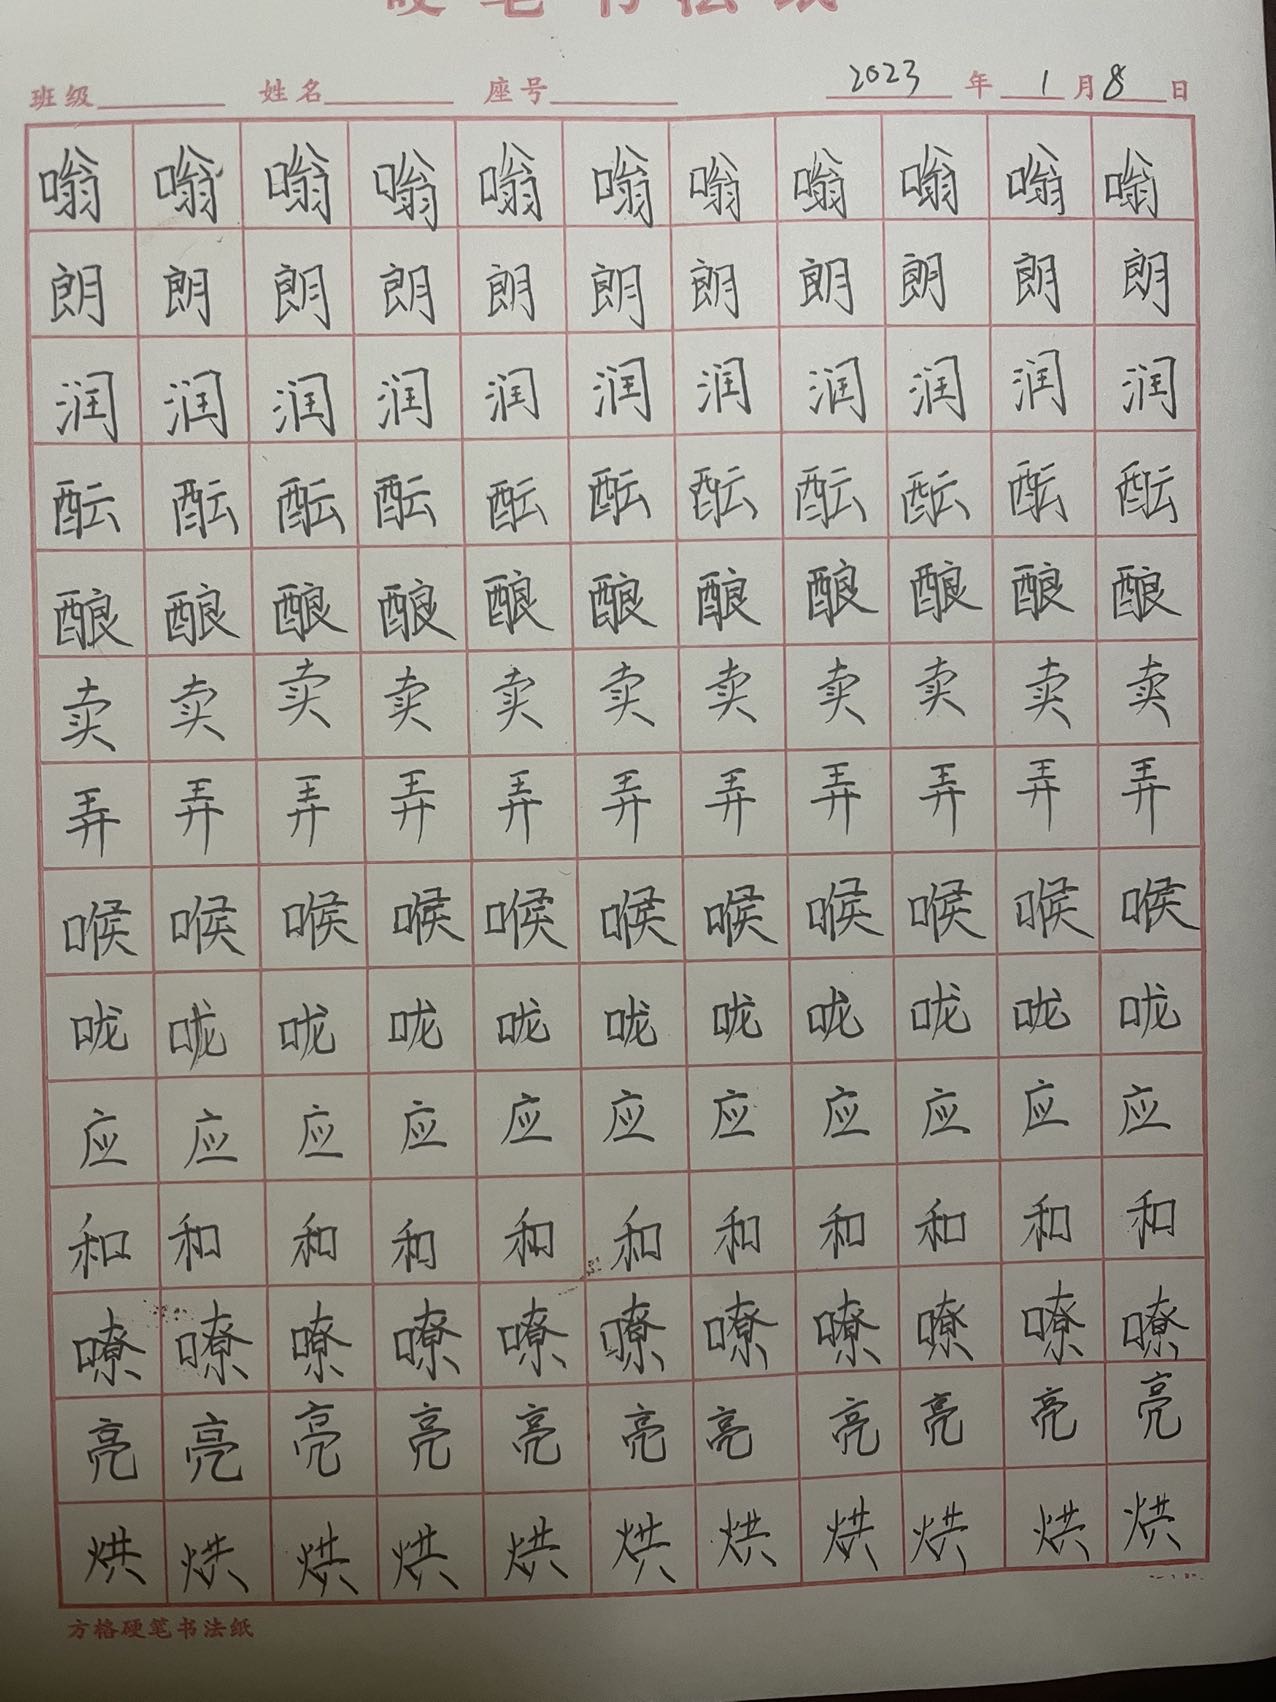 硬笔书法纸
班级 姓名 座号 2023 年 1 月 8 日
嗡 嗡 嗡 嗡 嗡 嗡 嗡 嗡 嗡 嗡 嗡
朗 朗 朗 朗 朗 朗 朗 朗 朗 朗 朗
润 润 润 润 润 润 润 润 润 润 润
酝 酝 酝 酝 酝 酝 酝 酝 酝 酝 酝
酿 酿 酿 酿 酿 酿 酿 酿 酿 酿 酿
卖 卖 卖 卖 卖 卖 卖 卖 卖 卖 卖
弄 弄 弄 弄 弄 弄 弄 弄 弄 弄 弄
喉 喉 喉 喉 喉 喉 喉 喉 喉 喉 喉
咙 咙 咙 咙 咙 咙 咙 咙 咙 咙 咙
应 应 应 应 应 应 应 应 应 应 应
和 和 和 和 和 和 和 和 和 和 和
嘹 嘹 嘹 嘹 嘹 嘹 嘹 嘹 嘹 嘹 嘹
亮 亮 亮 亮 亮 亮 亮 亮 亮 亮 亮
烘 烘 烘 烘 烘 烘 烘 烘 烘 烘 烘
方格硬笔书法纸